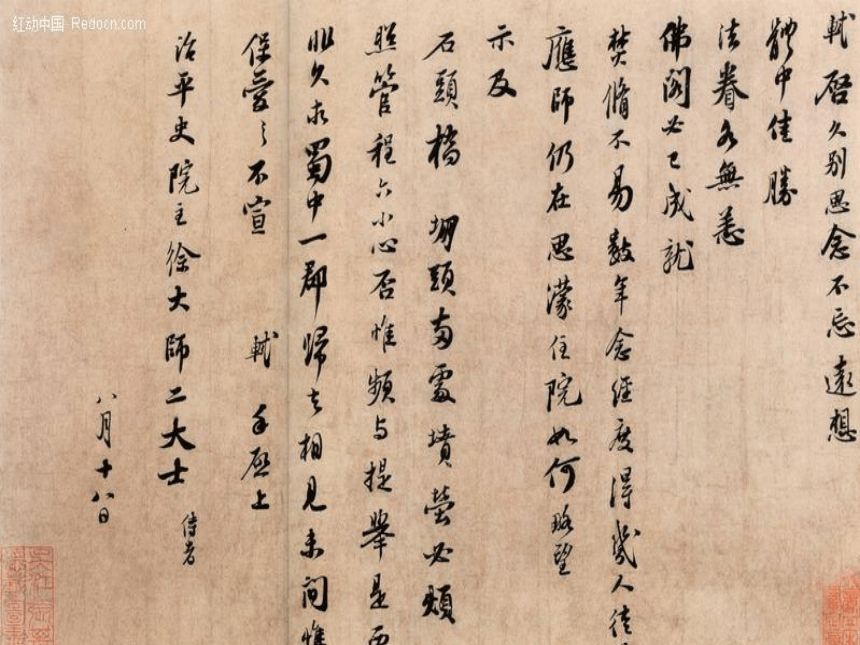 红动中国 Redocn.com
軾啓久别思念不忘遠想
體中佳勝
法眷各無恙
佛閣必已成就
焚脩不易數年念經度得幾人徒
應師仍在思濛住院如何略望
示及
石頭橋 堋頭兩處墳塋必煩
照管程六小心否惟頻与提舉是
非久求蜀中一郡歸去相見未間惟
保愛之不宣 軾手啓上
治平史院主徐大師二大士 侍者
八月十八日